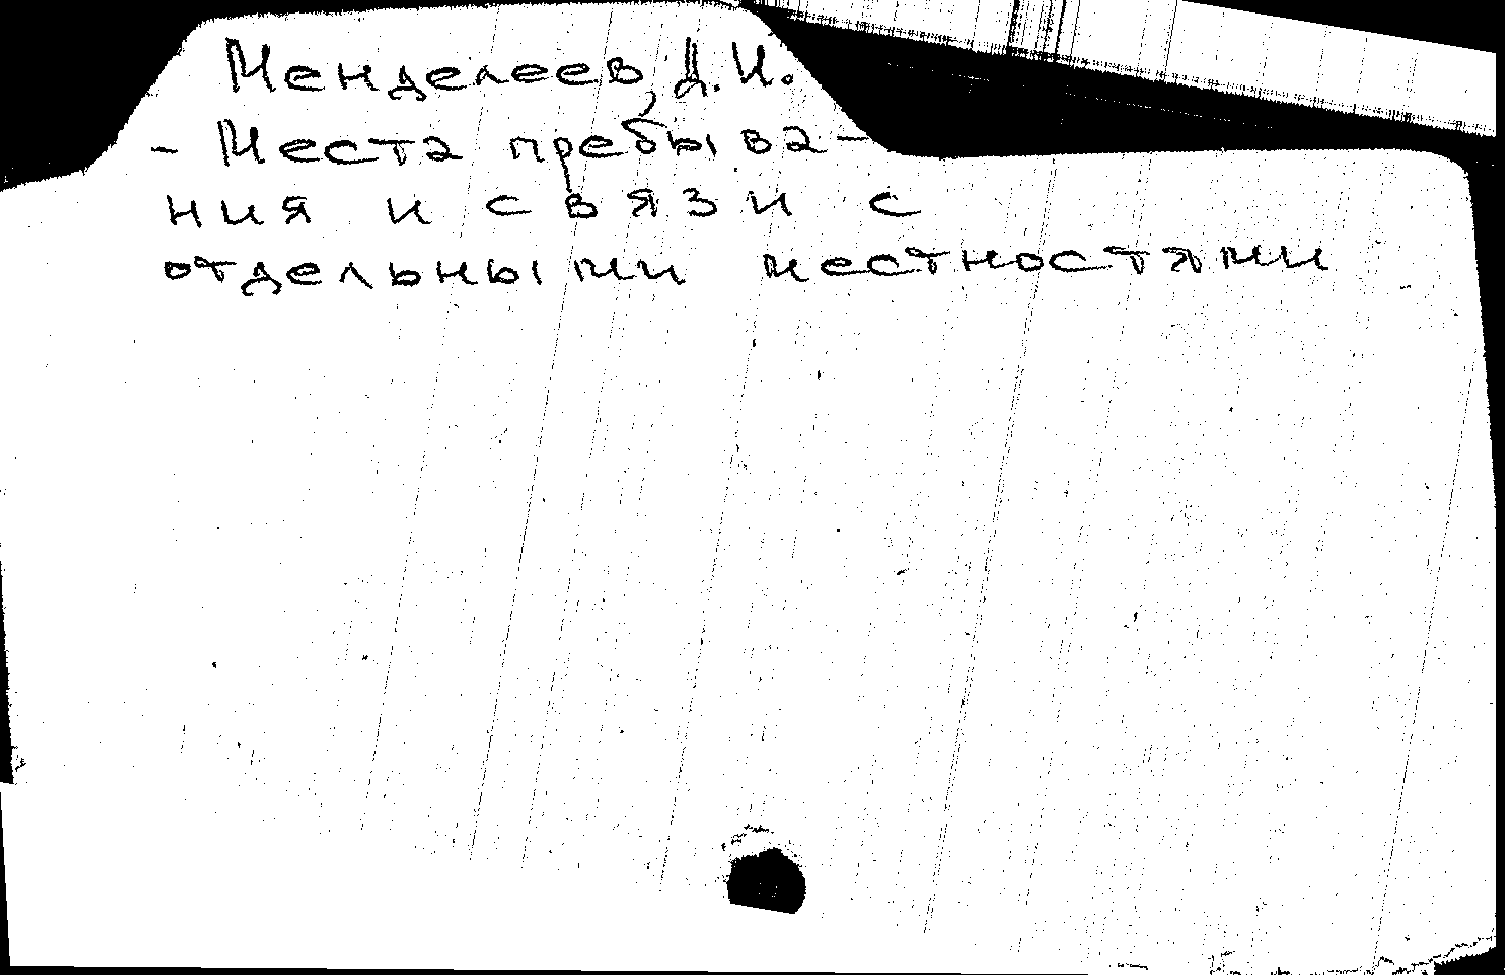 Менделеев, Д.И.
- Места пребыва-
ния и связи с
отдельными местностями